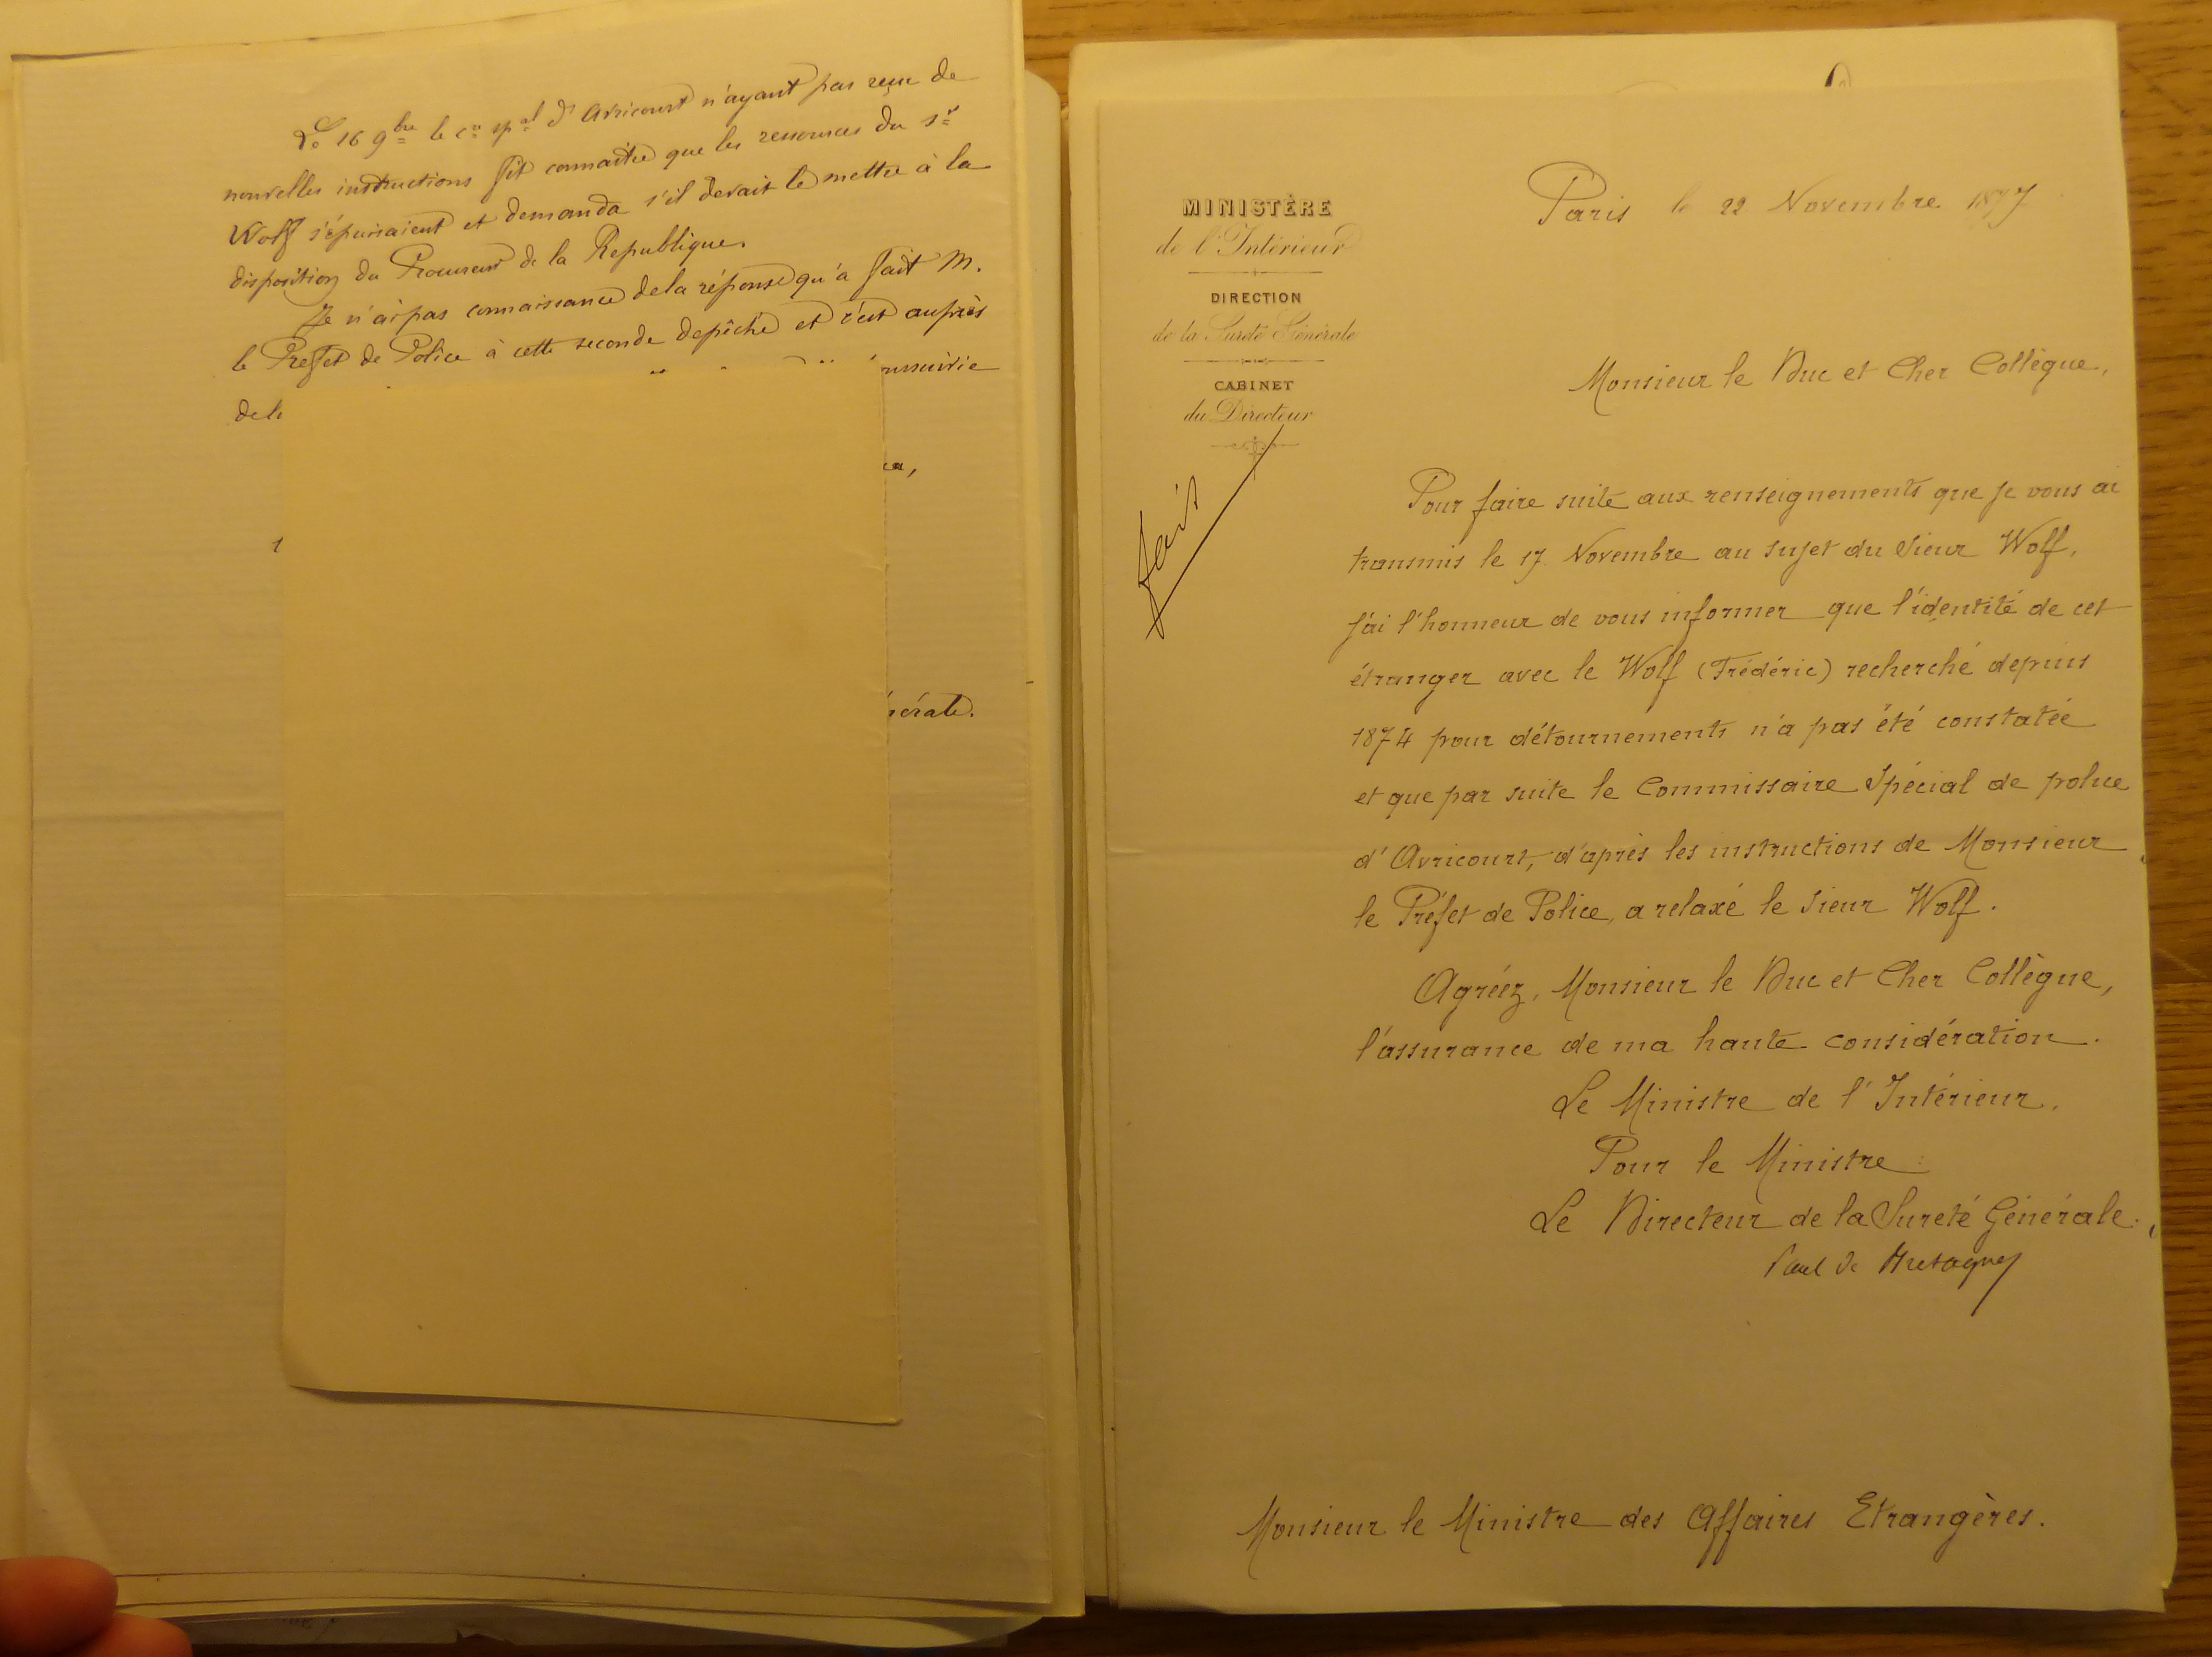 Le 16 9bre le cre spal d'Avricourt n'ayant pas reçu de
nouvelles instructions fit connaître que les ressources du sr
Wolf s'épuisaient et demanda s'il devait le mettre à la
disposition du Procureur de la Republique.
Je n'ai pas connaissance de la réponse qu'a fait M.
le Prefet de Police à cette seconde depêche et c'est auprès
MINISTÈRE
de l'Intérieur
DIRECTION
de la Sureté Générale
CABINET
du Directeur
fait
Paris le 22 Novembre 1877
Monsieur le Duc et Cher Collègue,
Pour faire suite aux renseignements que je vous ai
transmis le 17 Novembre au sujet du sieur Wolf,
j'ai l'honneur de vous informer que l'identité de cet
étranger avec le Wolf (Frédéric) recherché depuis
1874 pour détournements n'a pas été constatée
et que par suite le Commissaire Spécial de police
d'Avricourt, d'après les instructions de Monsieur
le Préfet de Police, a relaxé le sieur Wolf.
Agréez, Monsieur le Duc et Cher Collègue,
l'assurance de ma haute considération.
Le Ministre de l'Intérieur,
Pour le Ministre:
Le Directeur de la Sureté Générale.
Paul de
Monsieur le Ministre des Affaires Etrangères.